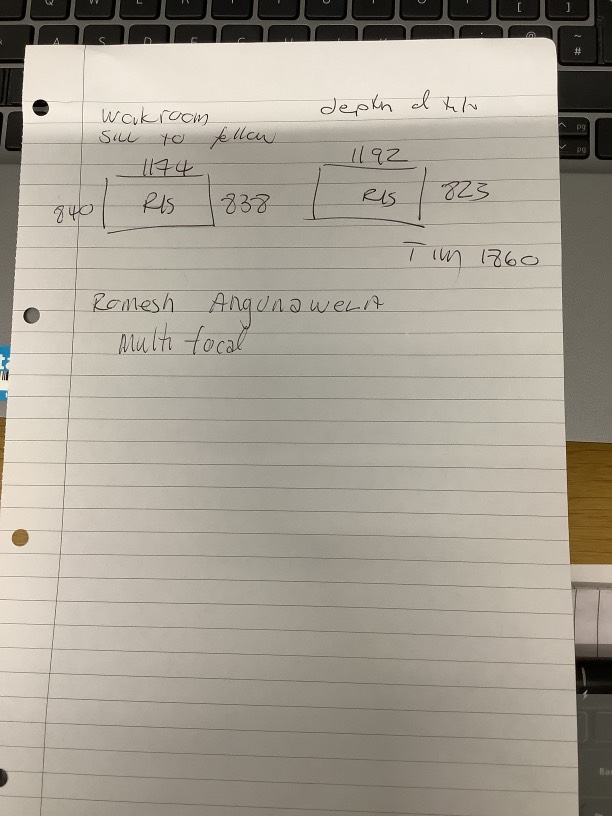 Workroom
Sill to follow
depth of
1174
840
R/S
838
1192
R/S
823
1860
Romesh Angunawela
Multi focal